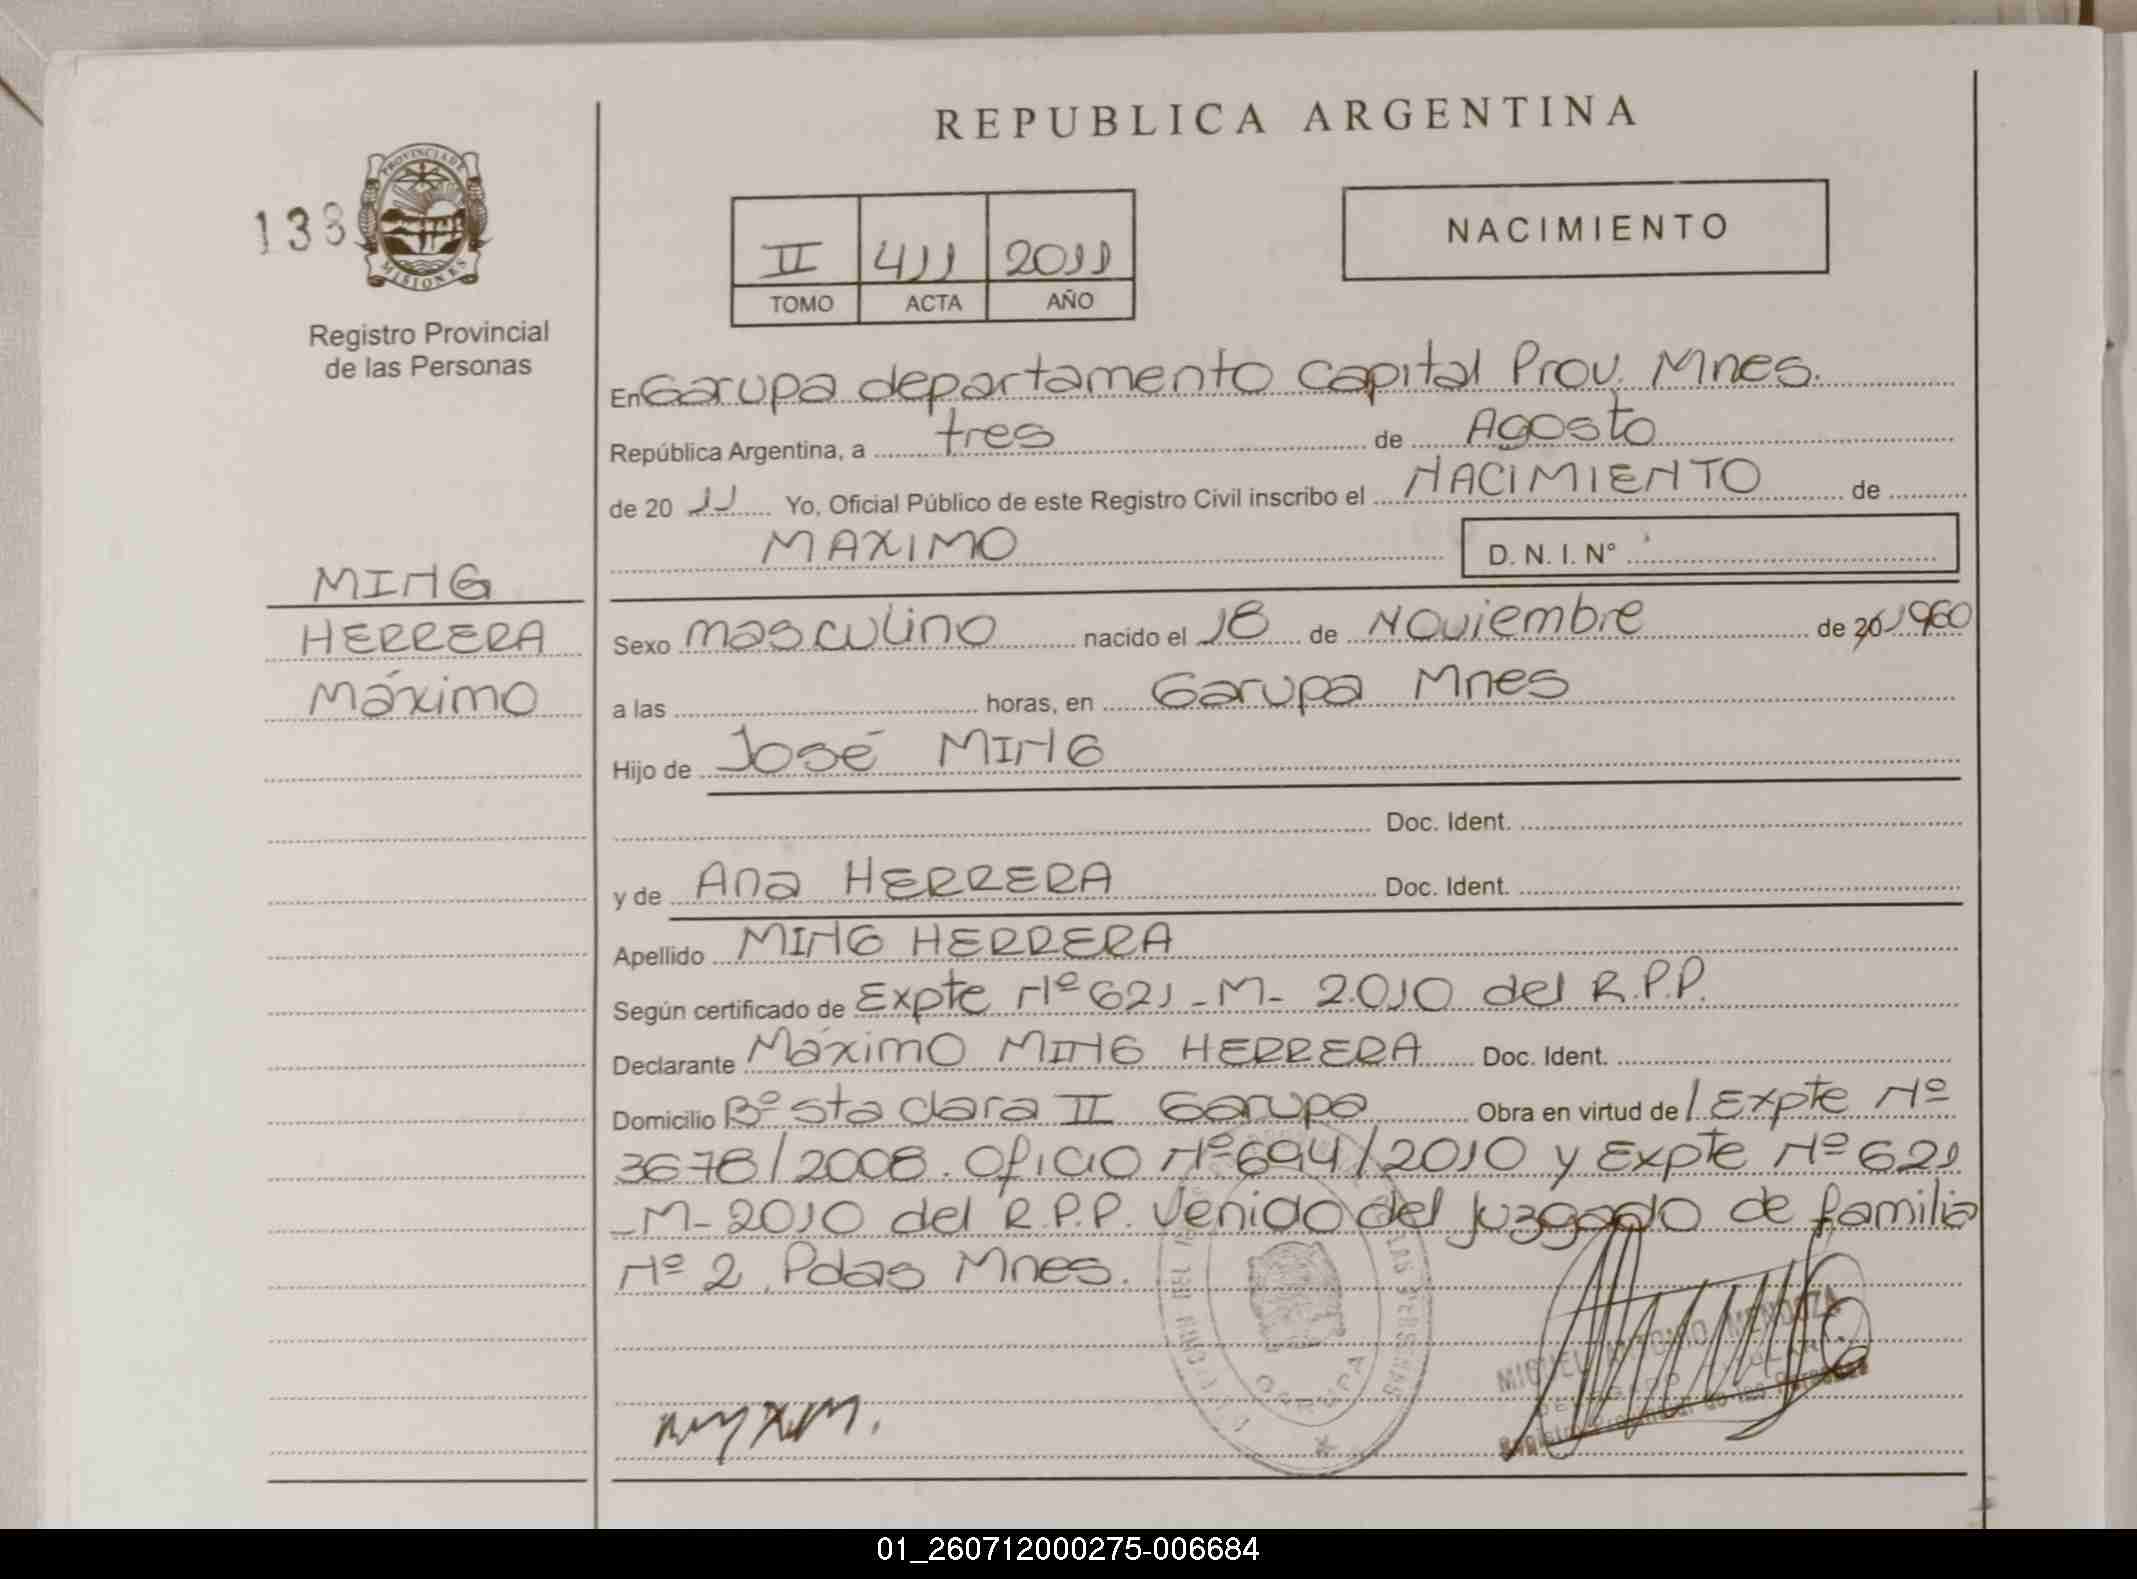 REPUBLICA ARGENTINA
133
PROVINCIA DE
MISIONES
Registro Provincial
de las Personas
II 411 2011
TOMO ACTA AÑO
NACIMIENTO
En Garupa departamento Capital Prov. Mnes.
República Argentina, a tres de Agosto
de 20 11 Yo, Oficial Público de este Registro Civil inscribo el NACIMIENTO de
MAXIMO D. N. I. N°
MING
HERRERA
Máximo
Sexo masculino nacido el 18 de Noviembre de 20 1960
a las horas, en Garupa Mnes
Hijo de José MING
Doc. Ident.
y de Ana HERRERA Doc. Ident.
Apellido MING HERRERA
Según certificado de Expte Nº 621 - M - 2.010 del R.P.P.
Declarante Máximo MING HERRERA Doc. Ident.
Domicilio Bº Sta Clara II Garupa Obra en virtud de / Expte Nº
3678/2008. Oficio Nº 694/2010 y Expte Nº 621
- M - 2010 del R.P.P. Venido del Juzgado de familia
Nº 2, Pdas Mnes.
GARUPA
MIGUEL ANTONIO MENDOZA
01_260712000275-006684